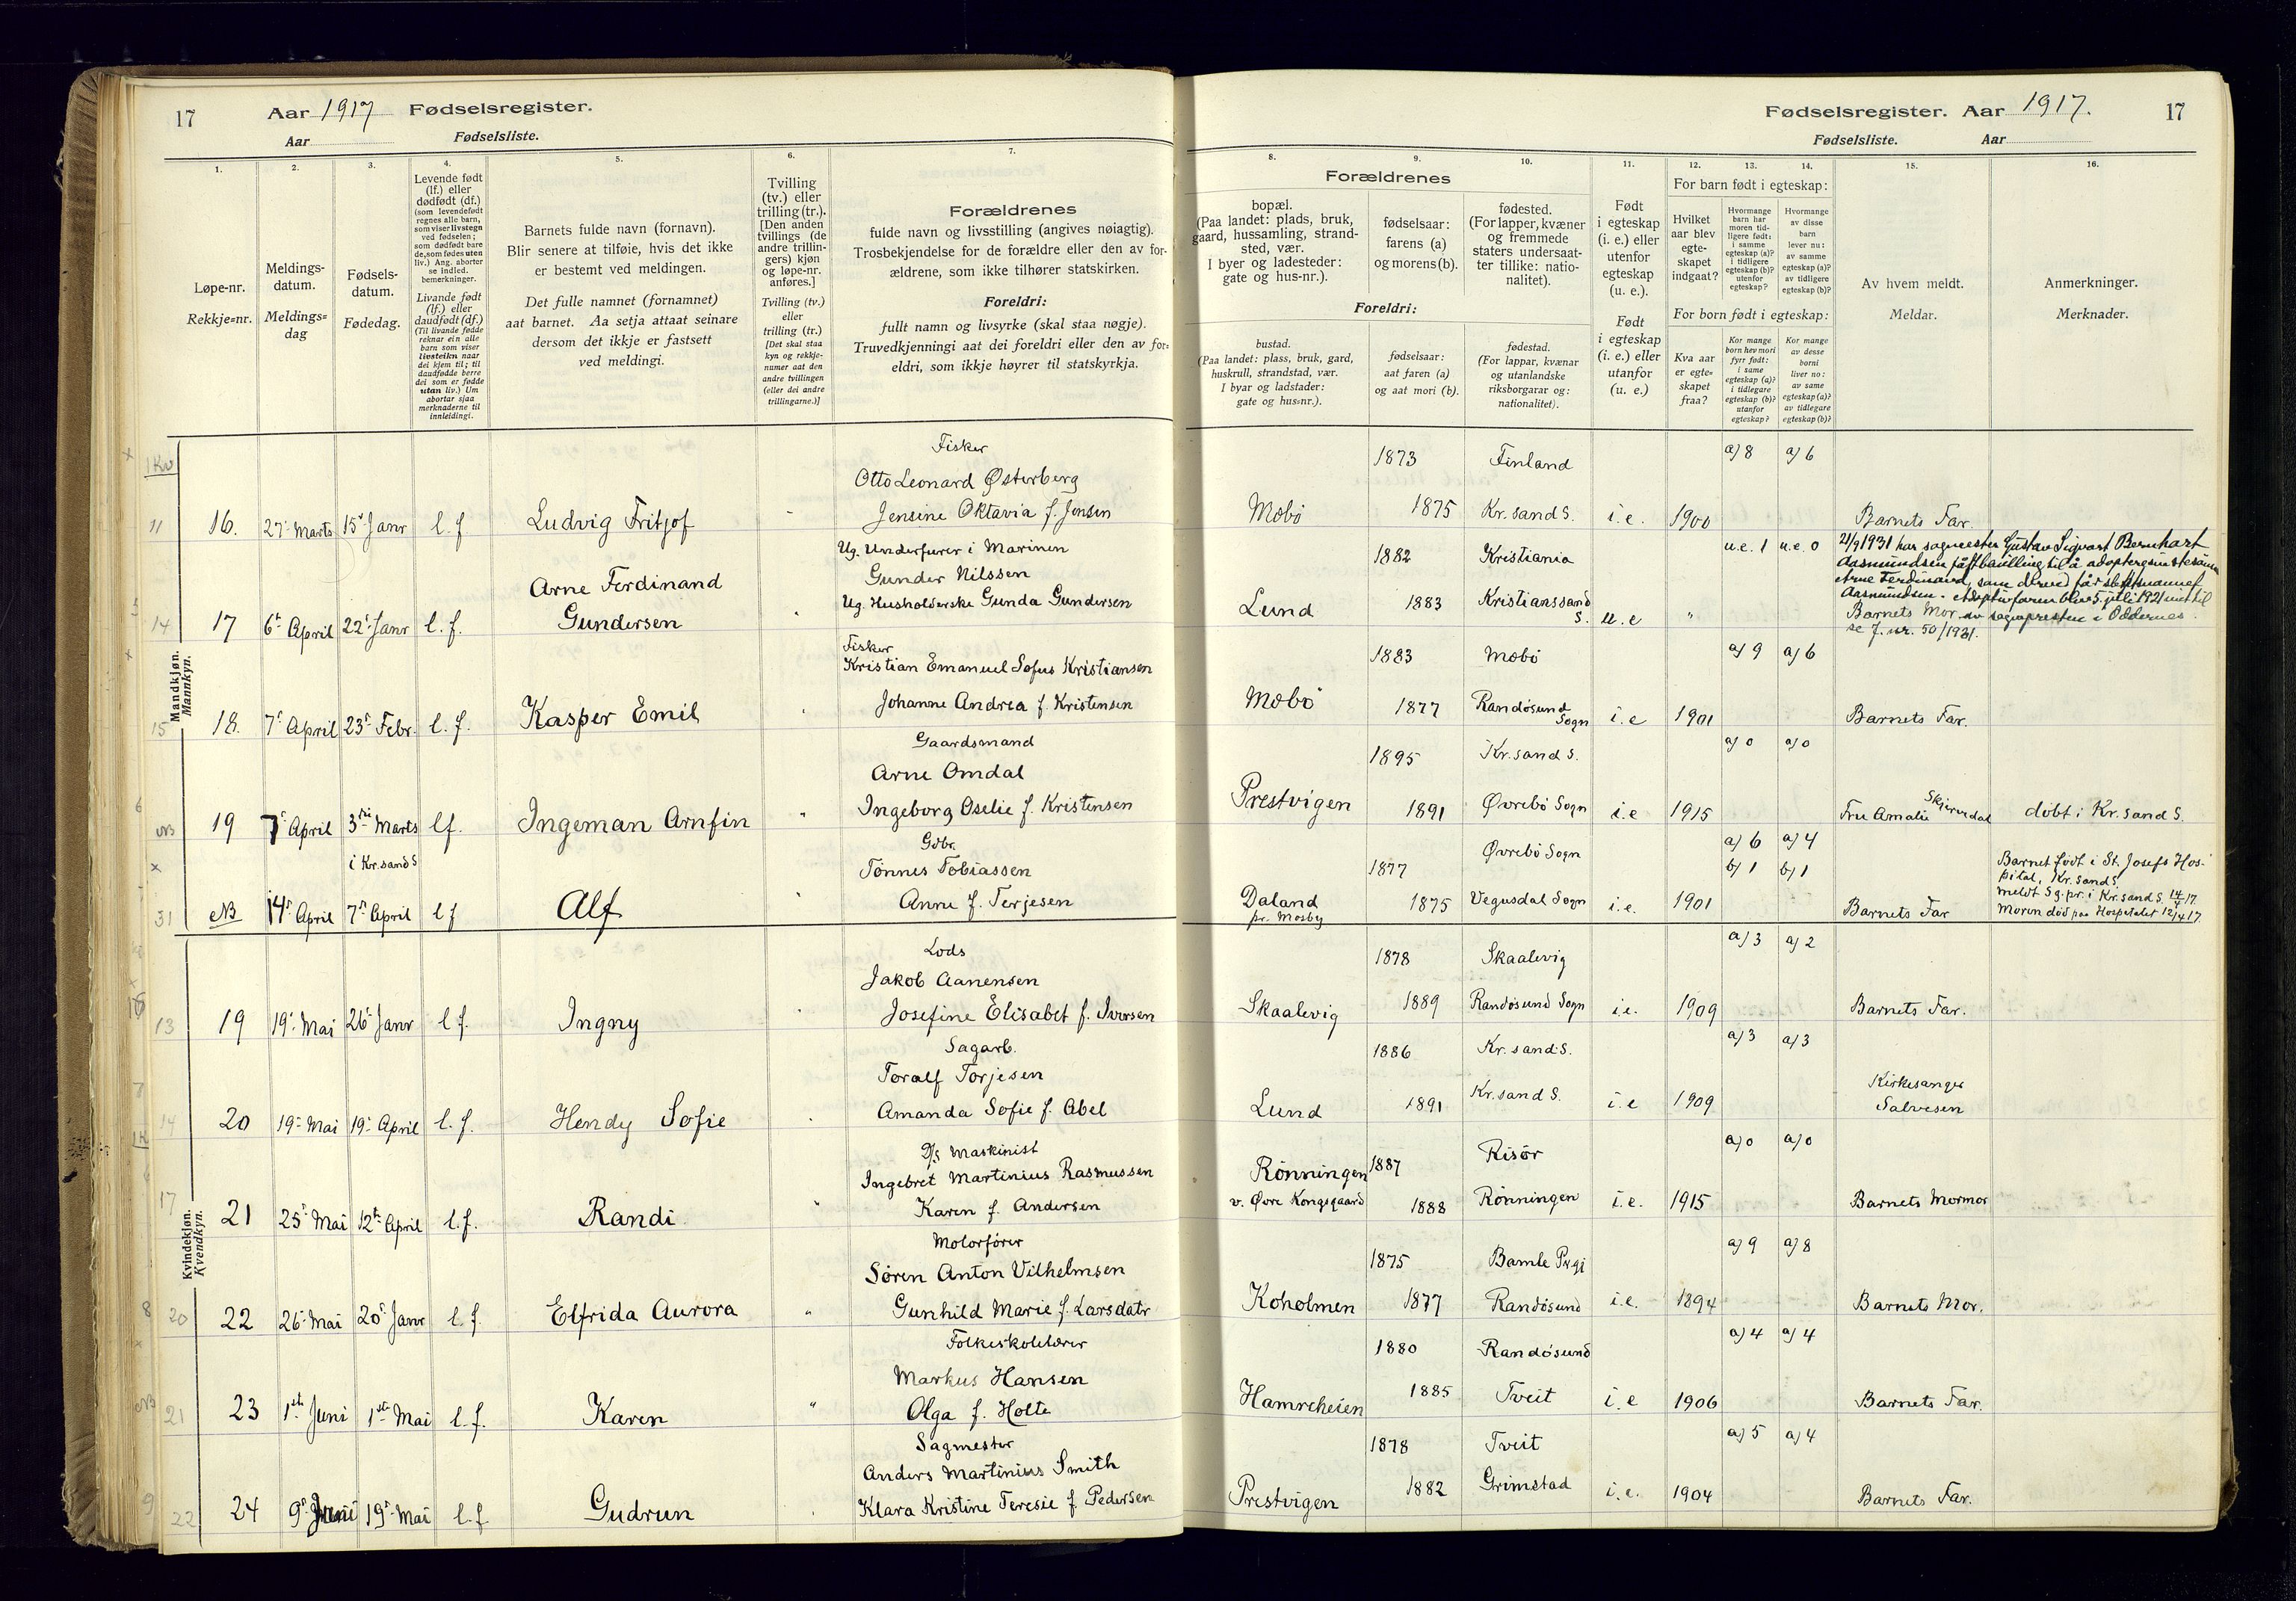 17 Aar 1917 Fødselsregister.
Aar Fødselsliste.
Fødselsregister. Aar 1917. 17
Fødselsliste. Aar
1. 2. 3. 4. 5. 6. 7.
Løpe-nr.
Rekkje=nr.
Meldings-
datum.
Meldings=
dag
Fødsels-
datum.
Fødedag.
Levende født
(lf.) eller
dødfødt (df.)
(som levendefødt
regnes alle barn,
som viser livstegn
ved fødselen;
som dødfødt bare
de, som fødes uten
liv.) Ang. aborter
se indled.
bemerkninger.
Livande født
(lf.) eller
daudfødt (df.)
(Til livande fødde
reknar ein alle
barn som viser
livsteikn naar
dei kjem til; til
daudfødde berre
dei som er fødde
utan liv.) Um
abortar sjaa
merknaderne til
innleidingi.
Barnets fulde navn (fornavn).
Blir senere at tilføie, hvis det ikke
er bestemt ved meldingen.
Det fulle namnet (fornamnet)
aat barnet. Aa setja attaat seinare
dersom det ikkje er fastsett
ved meldingi.
Tvilling
(tv.) eller
trilling (tr.).
[Den anden
tvillings (de
andre trillin-
gers) kjøn
og løpe-nr.
anføres.]
Tvilling (tv.)
eller
trilling (tr.)
[Det skal staa
kyn og rekkje-
numer aat den
andre tvillingen
(eller dei andre
trillingarne.)]
Forældrenes
fulde navn og livsstilling (angives nøiagtig).
Trosbekjendelse for de forældre eller den av for-
ældrene, som ikke tilhører statskirken.
Foreldri:
fullt namn og livsyrke (skal staa nøgje).
Truvedkjenningi aat dei foreldri eller den av for=
eldri, som ikkje høyrer til statskyrkja.
8. 9. 10. 11. 12. 13. 14. 15. 16.
Forældrenes
bopæl.
(Paa landet: plads, bruk,
gaard, hussamling, strand-
sted, vær.
I byer og ladesteder:
gate og hus-nr.).
fødselsaar:
farens (a)
og morens (b).
fødested.
(For lapper, kvæner
og fremmede
staters undersaat-
ter tillike: natio-
nalitet).
Foreldri:
bustad.
(Paa landet: plass, bruk, gard,
huskrull, strandstad, vær.
I byar og ladstader:
gate og hus=nr.).
fødselsaar:
aat faren (a)
og aat mori (b).
fødestad.
(For lappar, kvænar
og utanlandske
riksborgarar og:
nationalitet).
Født
i egteskap
(i. e.) eller
utenfor
egteskap
(u. e.).
Født
i egteskap
(i. e.) eller
utanfor
(u. e.)
For barn født i egteskap:
Hvilket
aar blev
egte-
skapet
indgaat?
Hvormange
barn har
moren tid-
ligere født:
i samme
egteskap (a)?
i tidligere
egteskap (b)?
utenfor
egteskap?
Hvormange
av disse
barn
lever nu:
av samme
egteskap (a)?
av tidligere
egteskap (b)?
For born født i egteskap:
Kva aar
er egte=
skapet
fraa?
Kor mange
born hev mori
fyrr født:
i same
egteskap (a)?
i tidlegare
egteskap (b)?
utanfor
egteskap?
Kor mange
av desse
borni
liver no:
av same
egteskap (a)?
av tidlegare
egteskap (b)?
Av hvem meldt.
Meldar.
Anmerkninger.
Merknader.
Mandkjøn.
Mannkyn.
Fisker
Otto Leonard Østerberg 1873 Finland a) 8 a) 6
16. 27' Marts 15' Janr l. f Ludvig Fritjof Jensine Oktavia f. Jensen Mebö 1875 Kr.sand S. i. e. 1900 Barnets Far.
Ug. Underfurer i Marinen
Gunder Nilssen 1882 Kristiania u.e. 1 u.e. 0
17 6' April 22' Janr l. f. Arne Ferdinand
Gundersen Ug. Husholderske Gunda Gundersen Lund 1883 Kristianssand
S. u. e
21/9 1931 har sagmester Gustav Sigvart Bernhart
Aasmundsen fått bevilling til å adoptere
Arne Ferdinand, som derved får slektsnavnet
Aasmundsen.
Barnets Mor. av sognepresten i Oddernes.
se J. nr. 50/1931.
Fisker
Kristian Emanuel Sofus Kristiansen 1883 Mebö a) 9 a) 6
18. 7' April 23' Febr. l. f. Kasper Emil Johanne Andrea f. Kristensen Mebö 1877 Randösund
Sogn i. e 1901 Barnets Far.
Gaardsmand
Arne Omdal 1895 Kr.sand S. a) 0 a) 0
19 7' April 3die Marts lf. Ingeman Arnfin Ingeborg Oselie f. Kristensen Prestvigen 1891 Øvrebö Sogn i. e 1915 Fru Amalie Skjerverdal döbt i Kr. sand S.
i Kr.sand S
Gdbr.
Tönnes Tobiassen 1877 Øvrebö Sogn a) 6 a) 4
b) 1 b) 1
NB 14' April 7' April l f Alf Anne f. Terjesen Daland
pr. Mosby 1875 Vegusdal Sogn i. e. 1901 Barnets Far
Barnet födt i St. Josefs Hos-
pital, Kr. sand S.
meldt Sg.pr. i Kr.sand S. 14/4 17.
Moren död paa Hospitalet 12/4 17.
Kvindekjøn.
Kvendkyn.
Lods
Jakob Aanensen 1878 Skaalevig a) 3 a) 2
19 19' Mai 26' Janr l. f. Ingny Josefine Elisabet f. Iversen Skaalevig 1889 Randösund Sogn i. e. 1909 Barnets Far.
Sagarb.
Toralf Torjesen 1886 Kr. sand S. a) 3 a) 3
20 19' Mai 19' April l. f. Hendy Sofie Amanda Sofie f. Abel Lund 1891 Kr. sand S. i. e 1909 Kirkesanger
Salvesen
D/S Maskinist
Ingebret Martinius Rasmussen 1887 Risör a) 0 a) 0
21 25' Mai 12te April l. f. Randi. Karen f. Andersen Rönningen
v. Øvre Kongsgaard 1888 Rönningen i. e. 1915 Barnets Mormor
Motorförer
Sören Anton Vilhelmsen 1875 Bamle Prgj a) 9 a) 8
22 26' Mai 20' Janr l. f. Elfrida Aurora Gunhild Marie f. Larsdatr Koholmen 1877 Randösund i. e. 1894 Barnets Mor.
Folkeskolelærer
Markus Hansen 1880 Randösund a) 4 a) 4
23 1ste Juni 1ste Mai l. f. Karen Olga f. Holte Hamreheien 1885 Tveit i. e 1906 Barnets Far.
Sagmester
Anders Martinius Smith 1878 Tveit a) 5 a) 4
24 9' Juni 19' Mai l. f. Gudrun Klara Kristine Teresie f. Pedersen Prestvigen 1882 Grimstad i. e. 1904 Barnets Far.